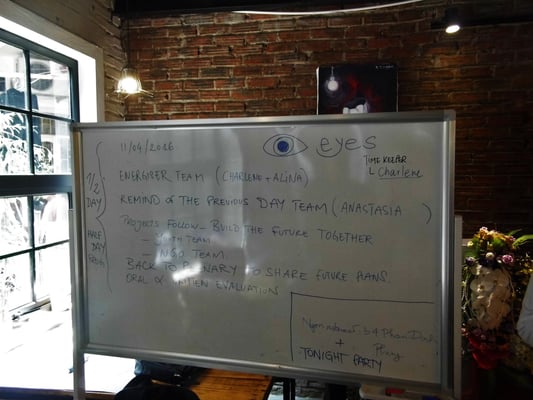 11/04/2016
eyes
TIME KEEPER
Charlène
1/2 DAY
ENERGISER TEAM (CHARLENE + ALINA)
REMIND OF THE PREVIOUS DAY TEAM (ANASTASIA )
PROJECTS FOLLOW - BUILD THE FUTURE TOGETHER
HALF DAY
- TEAM
- NGO TEAM
BACK TO PLENARY TO SHARE FUTURE PLANS
ORAL & EVALUATION
34 Phan Dinh
Phung
+
TONIGHT PARTY